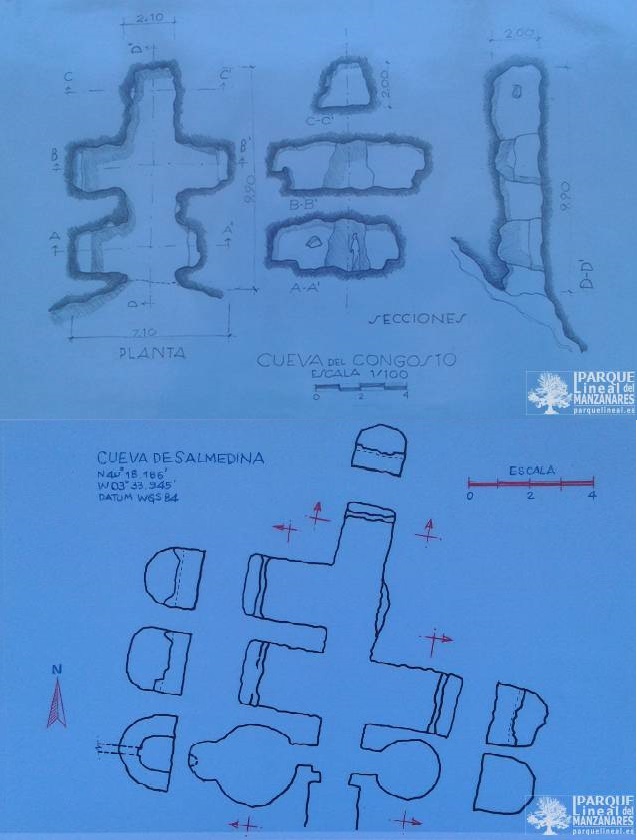 2.10
D
2.00
C
C'
2.00
C-C'
B
B'
9.90
9.90
B-B'
A
A'
D-D'
A-A'
D
SECCIONES
7.10
PLANTA
CUEVA DEL CONGOSTO
ESCALA 1/100
0 2 4
PARQUE
Lineal del
MANZANARES
parquelineal.es
CUEVA DE SALMEDINA
N40° 18.186'
W03° 33.945'
DATUM WGS84
ESCALA
0 2 4
N
PARQUE
Lineal del
MANZANARES
parquelineal.es